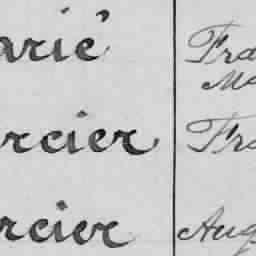 arié Fra
Ma
rcier Fra
rcier Aug